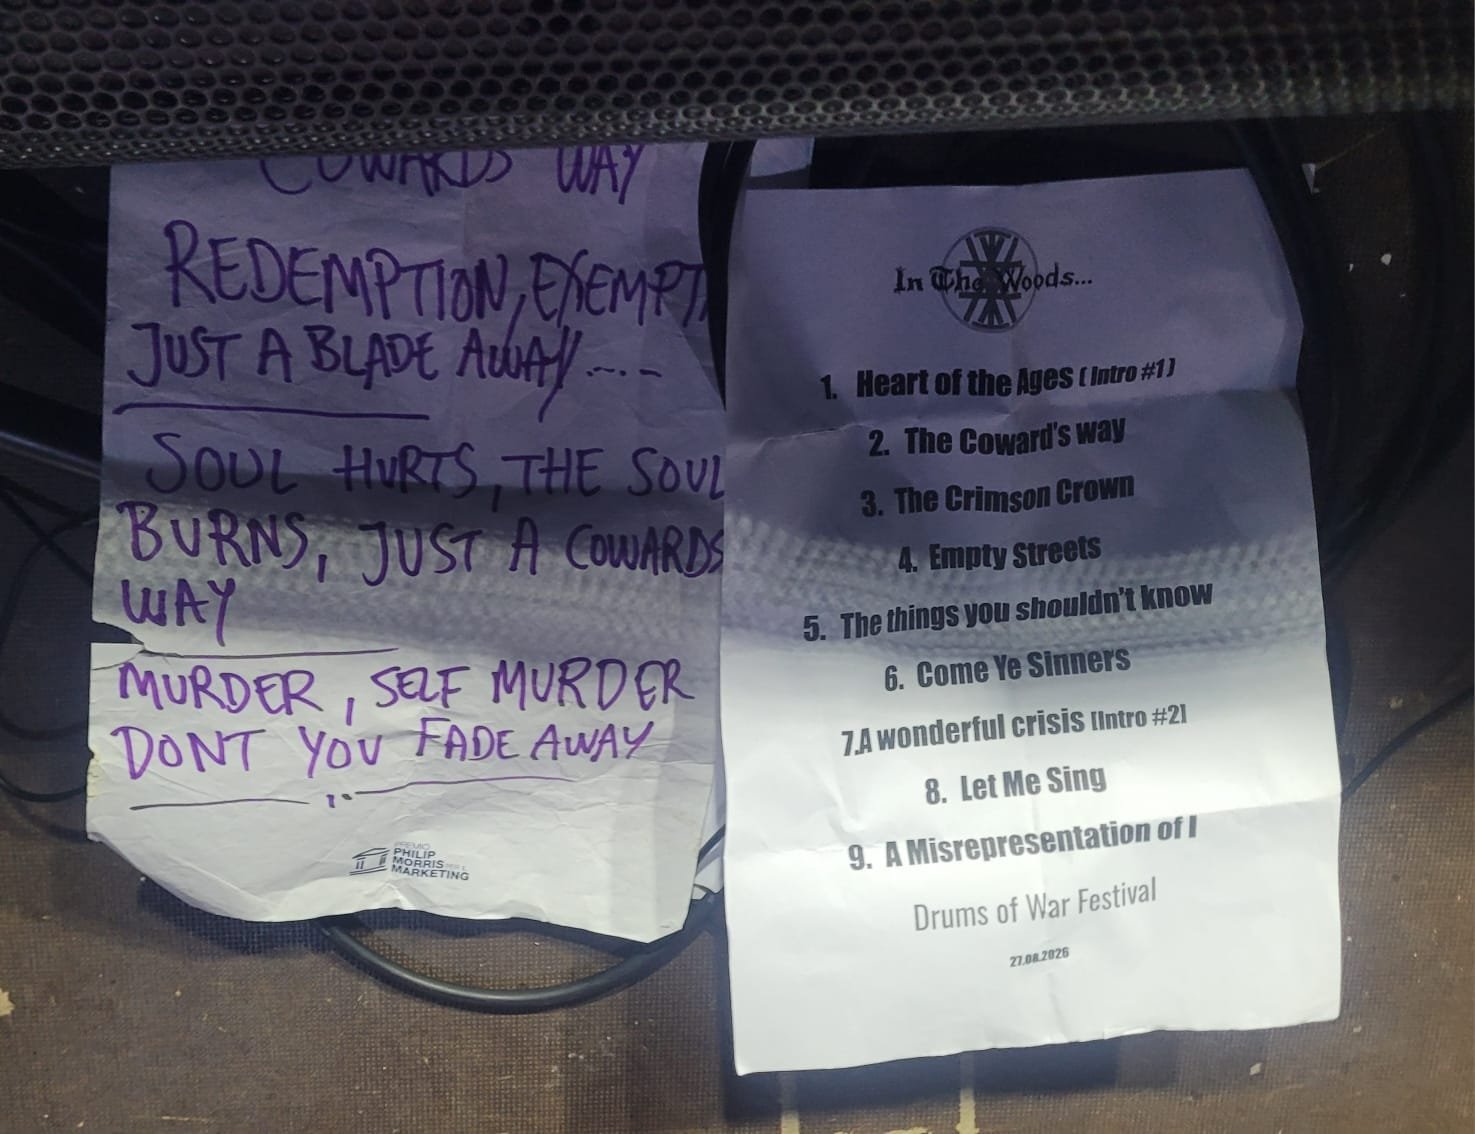 COWARDS WAY
REDEMPTION, EXEMPT
JUST A BLADE AWAY....-
SOUL HURTS, THE SOUL
BURNS, JUST A COWARDS
WAY
MURDER, SELF MURDER
DONT YOU FADE AWAY
PREMIO
PHILIP
MORRIS PER IL
MARKETING
In The Woods...
1. Heart of the Ages (Intro #1)
2. The Coward's way
3. The Crimson Crown
4. Empty Streets
5. The things you shouldn't know
6. Come Ye Sinners
7.A wonderful crisis [Intro #2]
8. Let Me Sing
9. A Misrepresentation of I
Drums of War Festival
27.08.2026